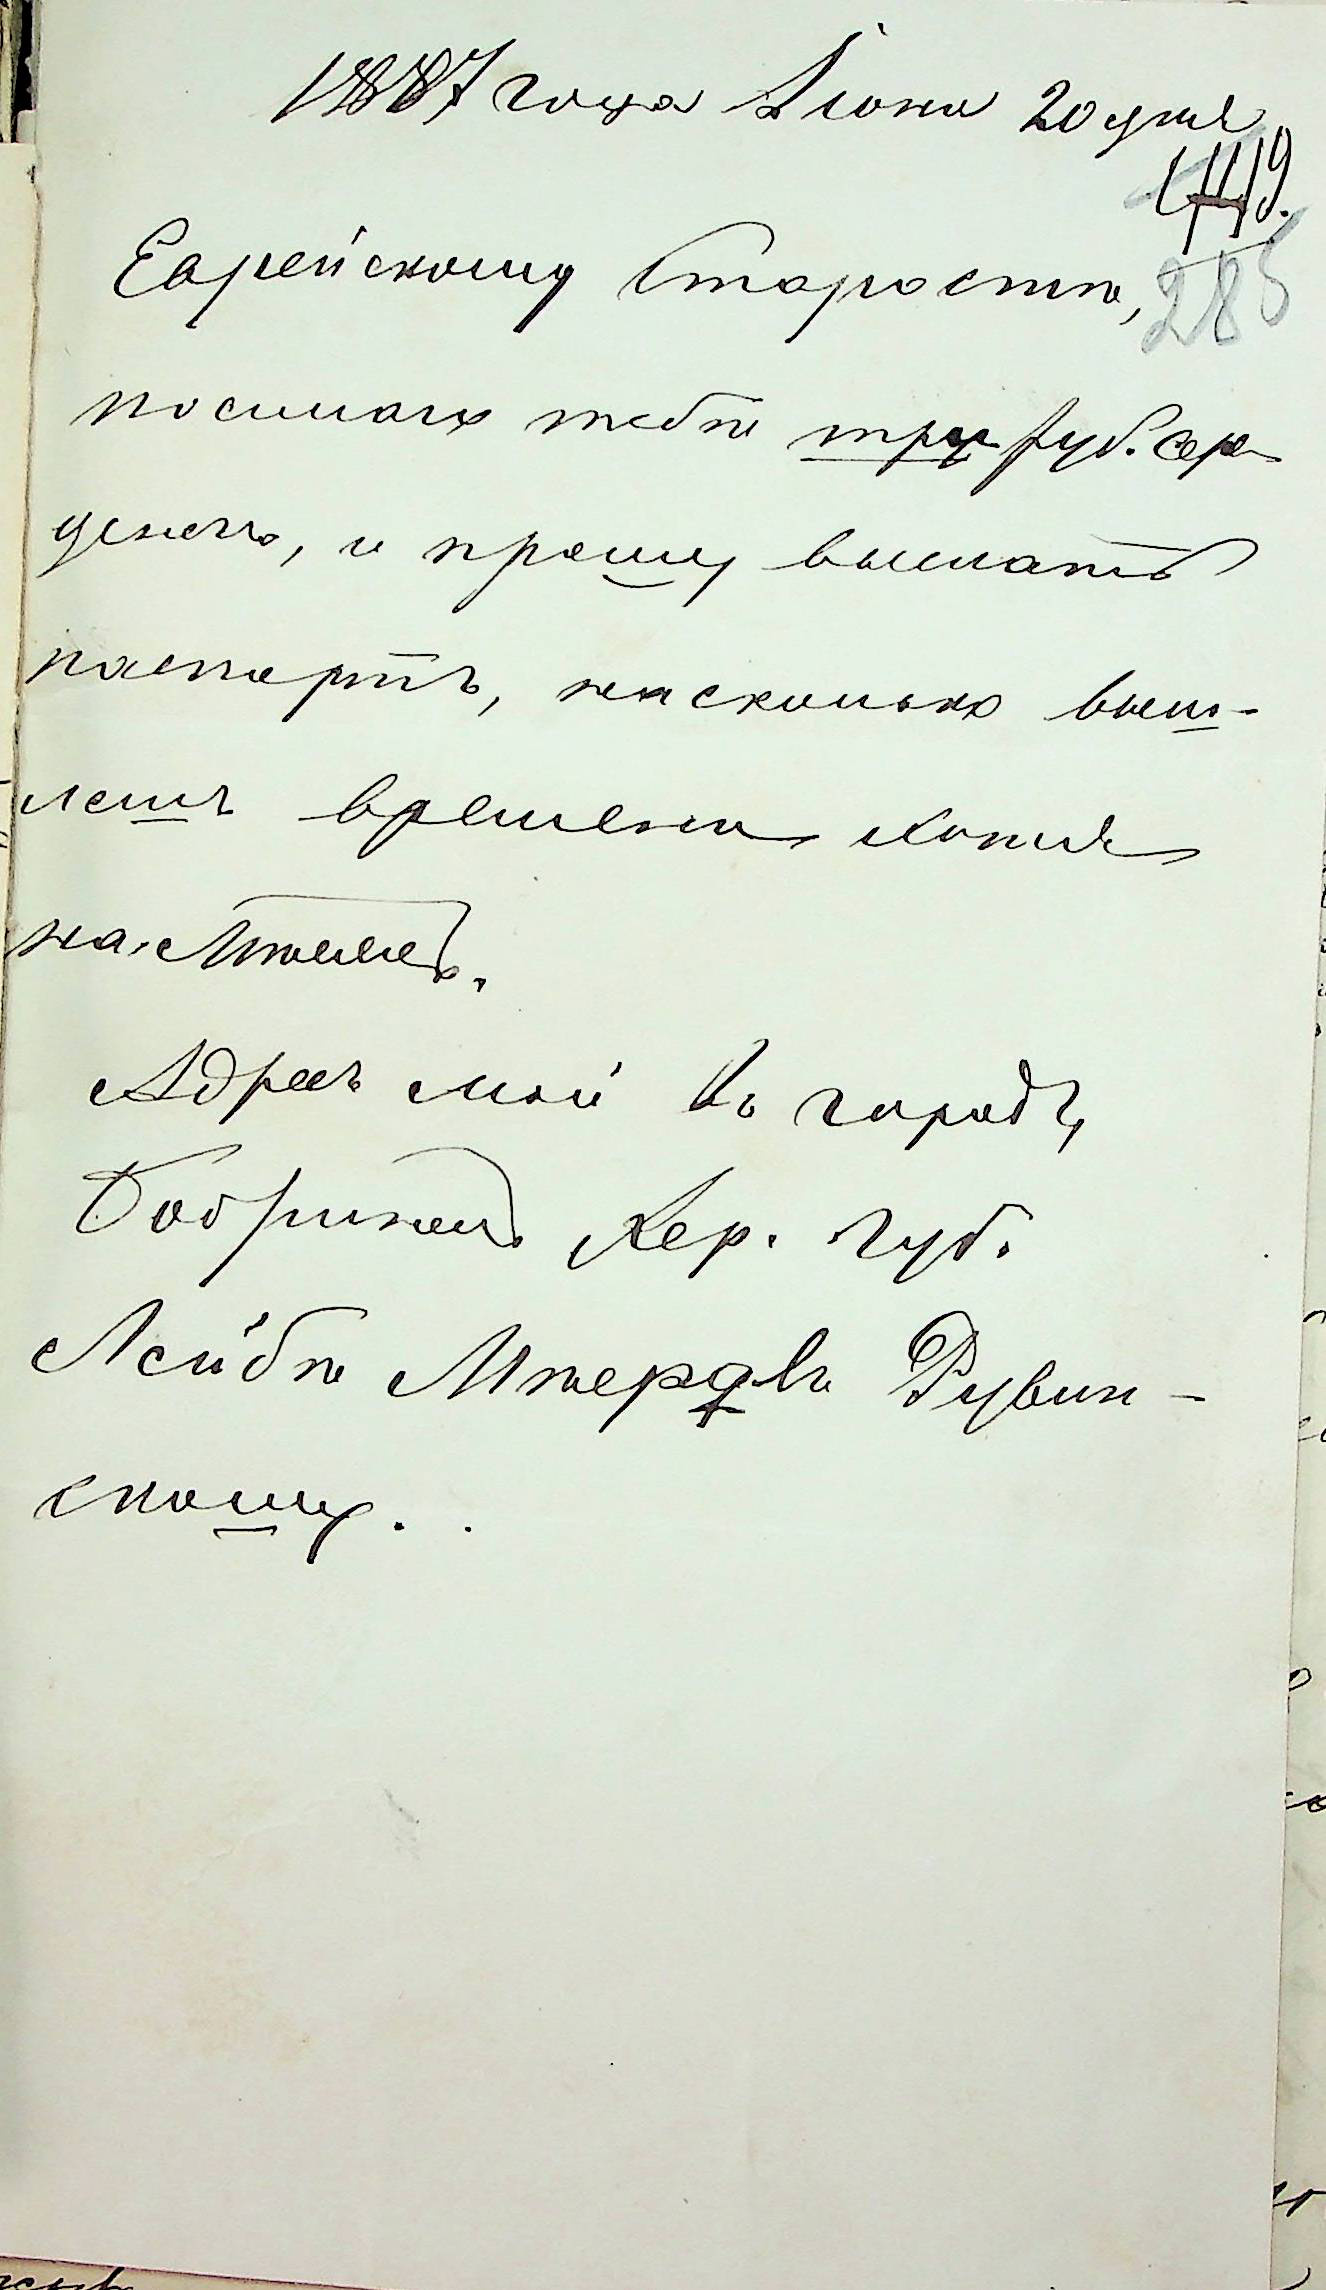 1887 года Iюня 20 дня
285
Еврейскому Старосте,
посилаю тебе три руб. сер.
денегъ, и прошу выслать
паспортъ, насколько выш-
лешъ времени хотя
на
Адресъ мой Въ городъ
Бобринецъ Хер. губ.
Лейбе Рувин-
скому.